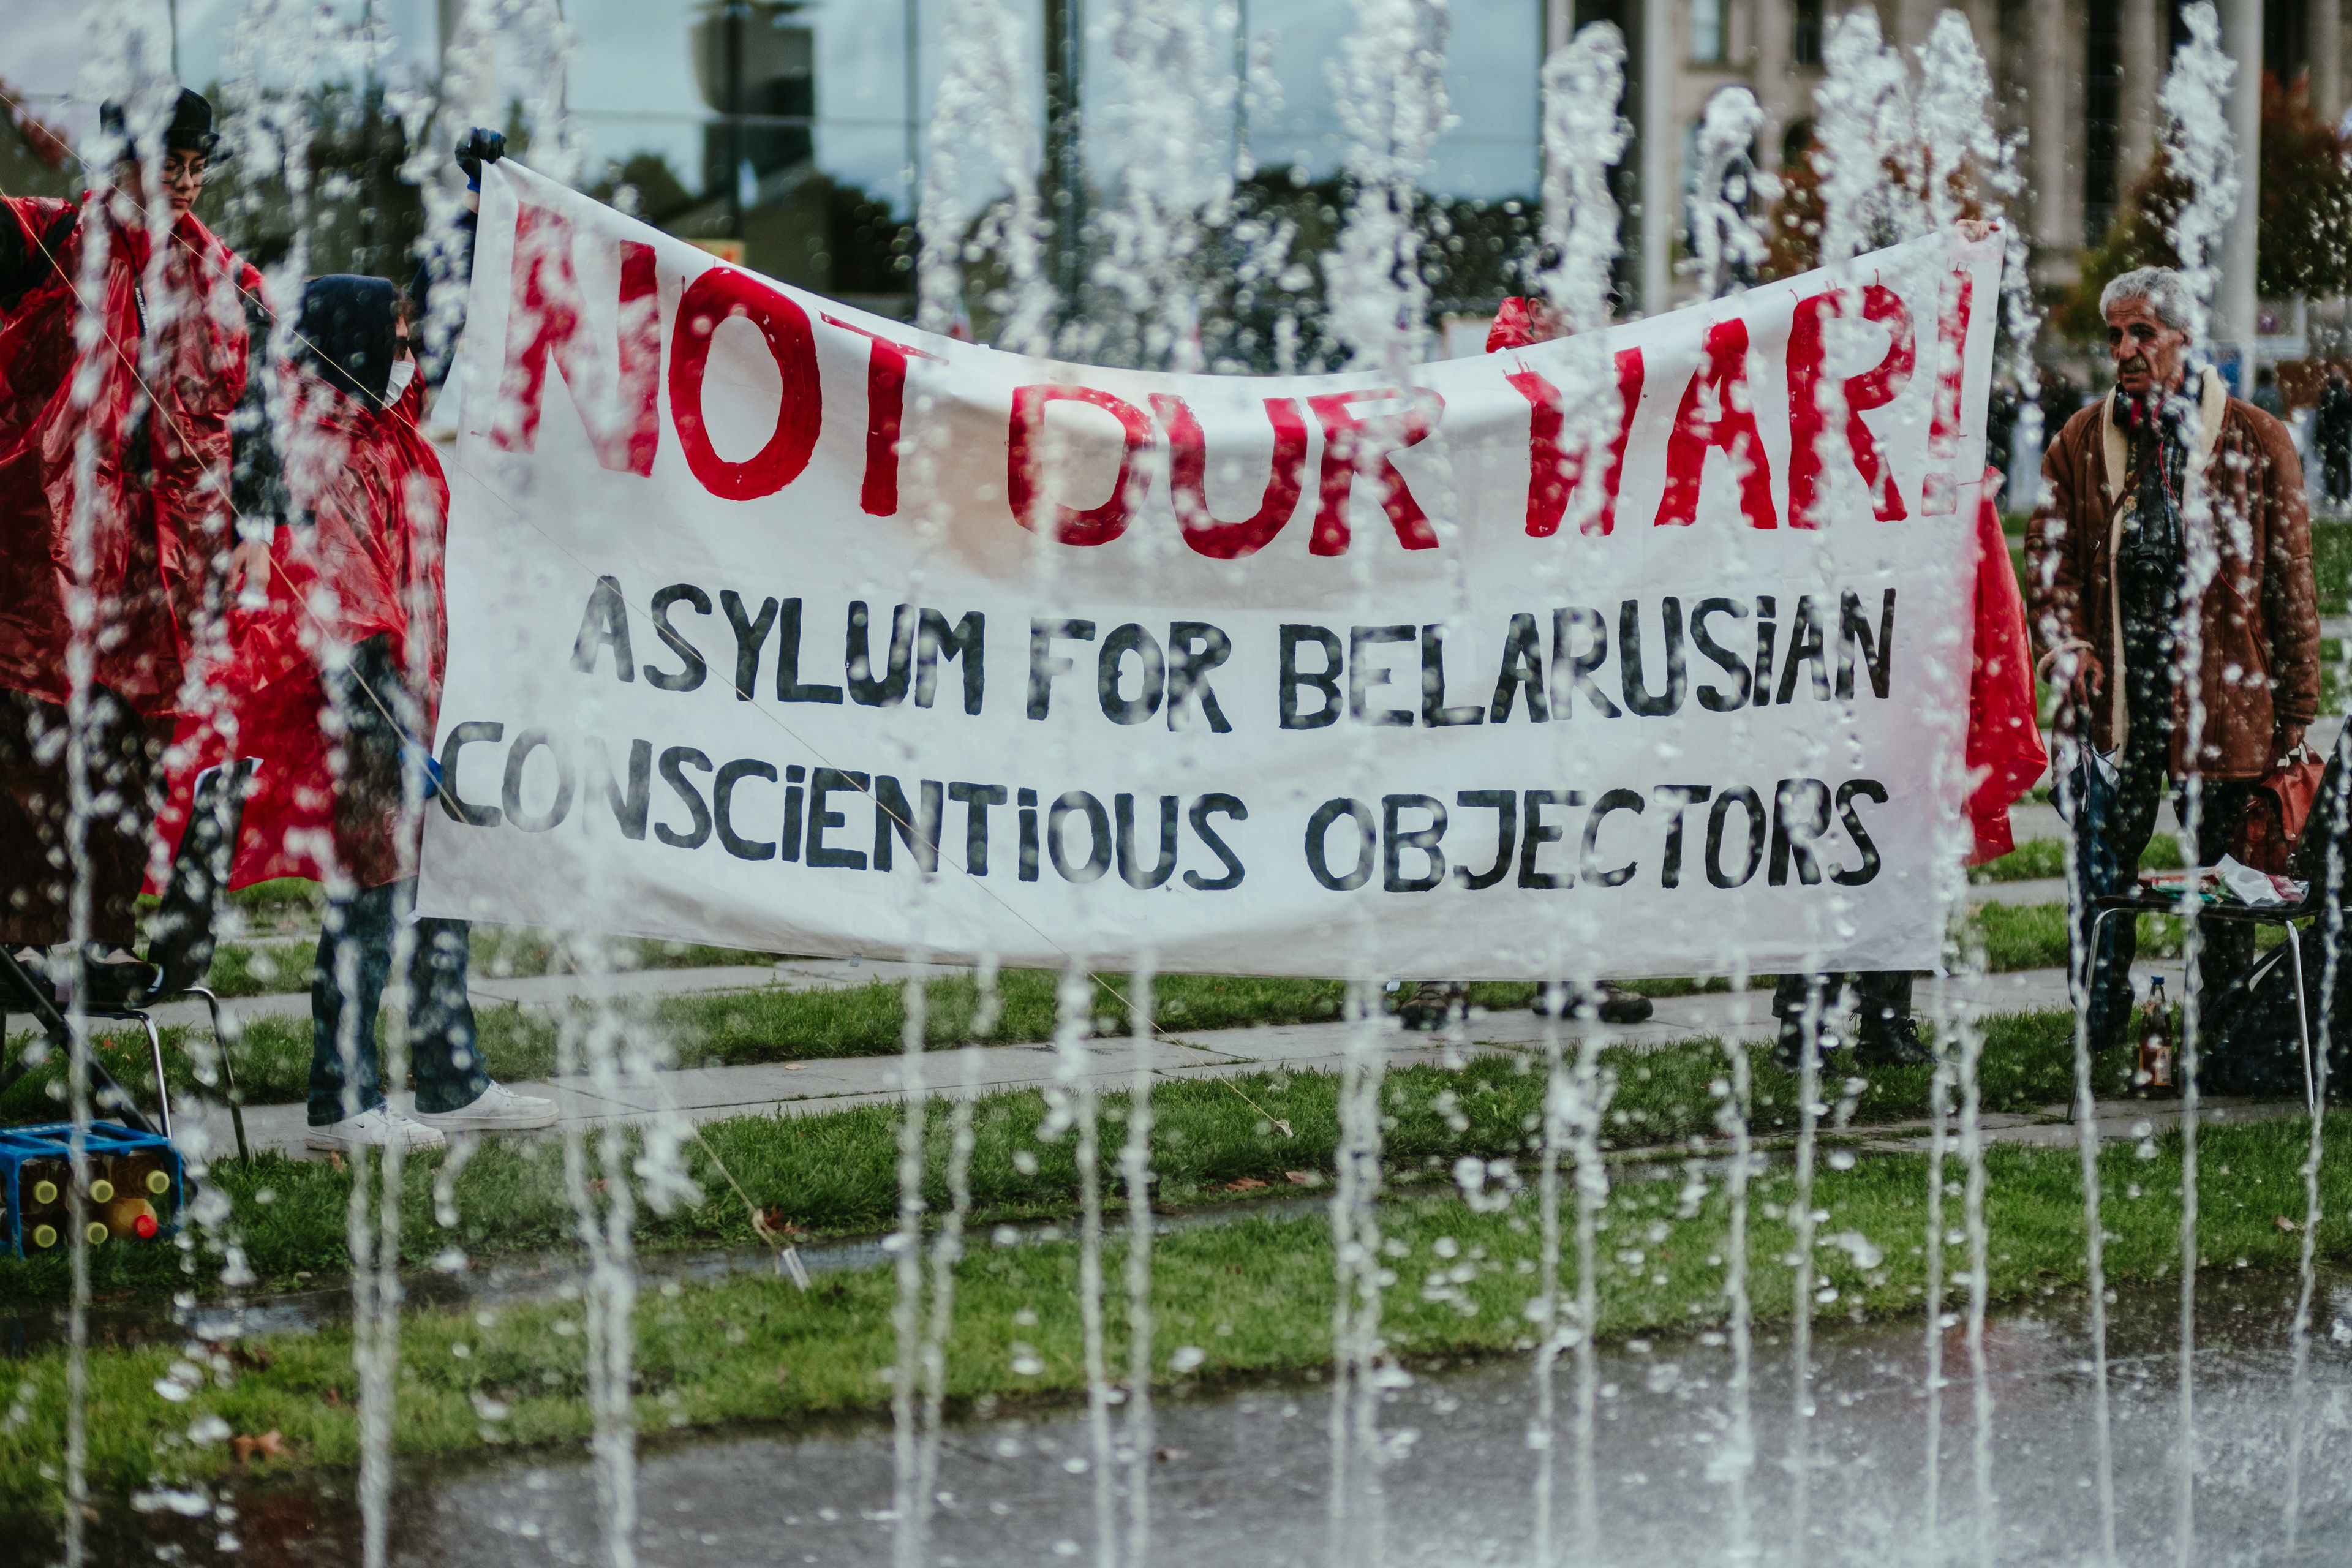 NOT OUR WAR!
ASYLUM FOR BELARUSiAN
CONSCiENTiOUS OBJECTORS